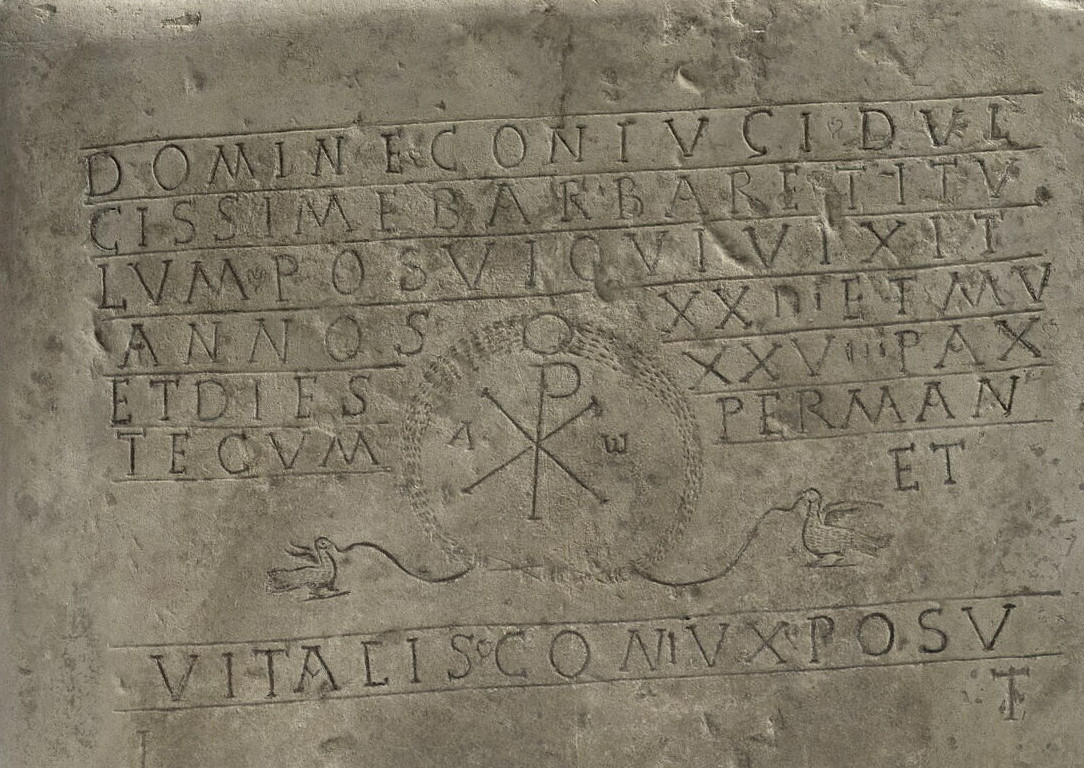 DOMINE CONIVGI DVL
CISSIME BARBARE TITV
LVM POSVI QVI VIXIT
ANNOS XXIII ET M V
ET DIES XXVIIII PAX
TECVM PERMAN
ET
A ω
VITALIS CONIVX POSV
T